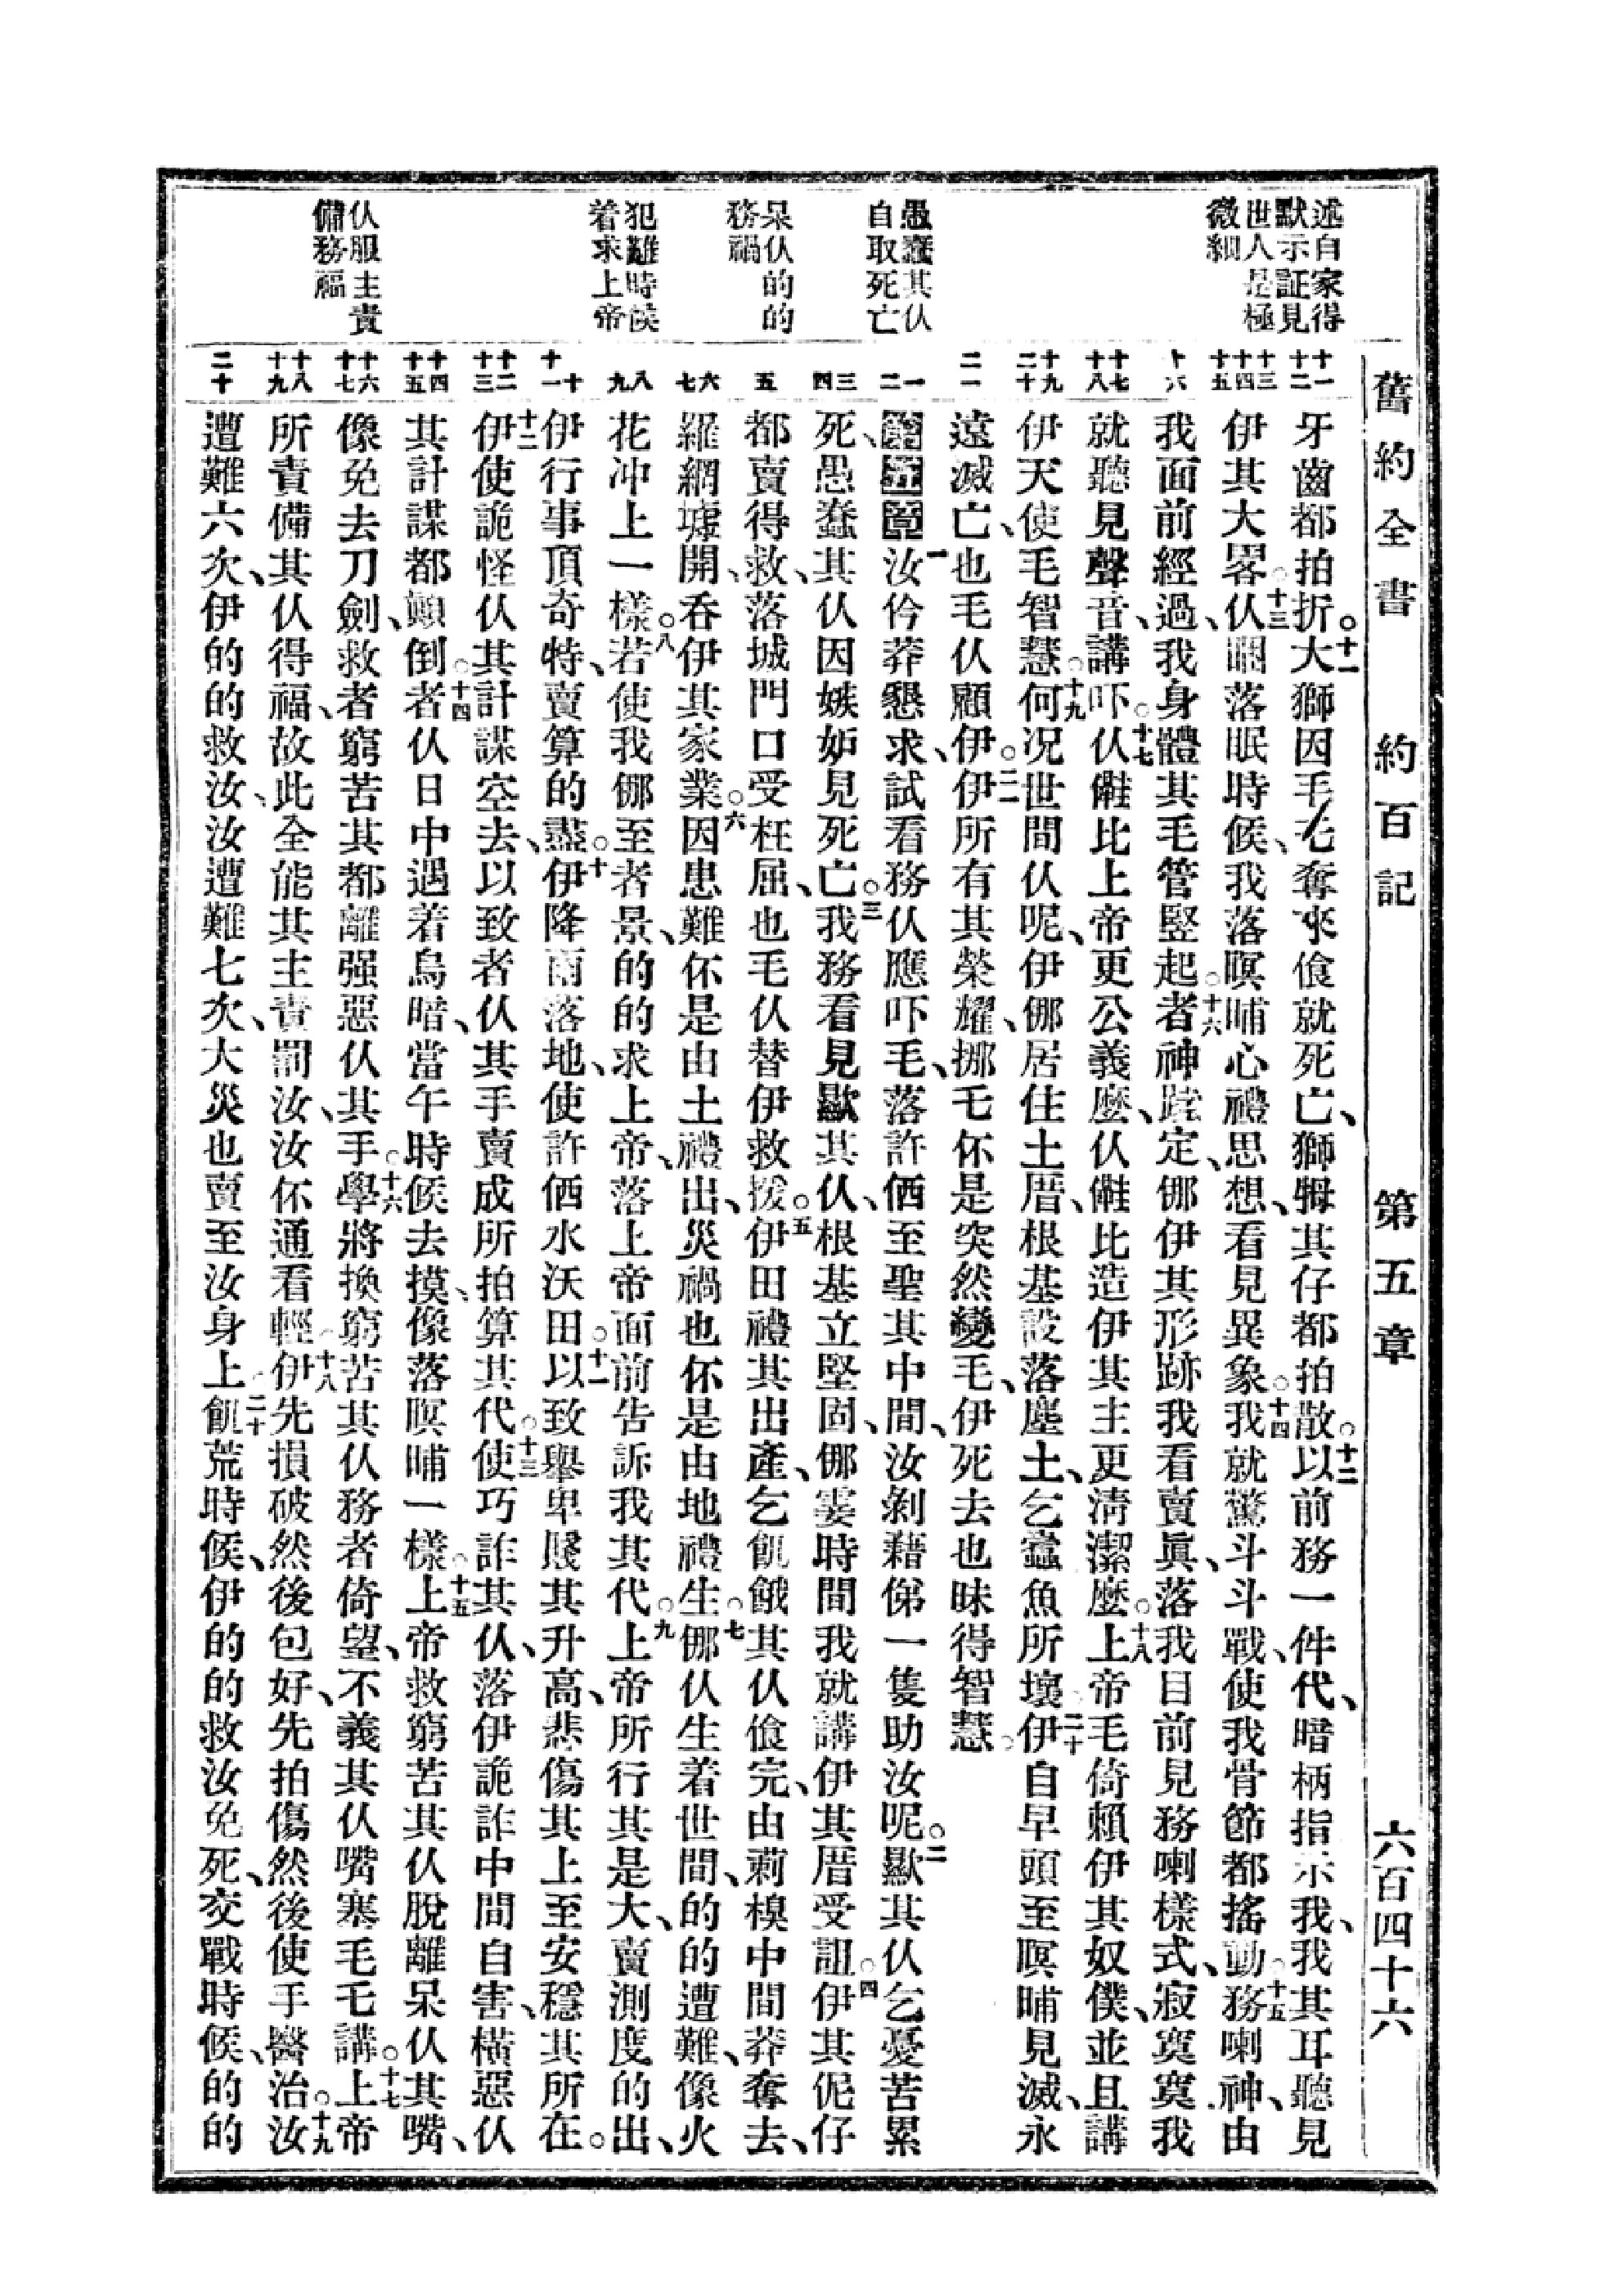 舊約全書 約百記 第五章 六百四十六
述自家得
默示証見
世人是極
微細
愚蠢其仈
自取死亡
呆仈的的
務禍
犯難時候
着求上帝
仈服主責
備務福
十一
十二
十三
十四
十五
十六
十七
十八
十九
二十
二一
一
二
三
四
五
六
七
八
九
十
十一
十二
十三
十四
十五
十六
十七
十八
十九
二十
牙齒都拍折。十一大獅因毛乇奪來飡就死亡、獅㹀其仔都拍散。十二以前務一件代、暗柄指示我、我其耳聽見
伊其大畧。十三仈睏落眠時候、我落暝晡心禮思想、看見異象。十四我就驚斗斗戰、使我骨節都搖動。十五務喇神、由
我面前經過、我身體其毛管竪起。十六者神跕定、㑚伊其形跡我看賣眞、落我目前見務喇樣式、寂寞寞我
就聽見聲音、講。十七吓仈、㒕比上帝更公義麽、仈㒕比造伊其主更清潔麽。十八上帝毛倚賴伊其奴僕、並且講
伊天使毛智慧。十九何况世間仈呢、伊㑚居住土厝、根基設落塵土、乞蠹魚所壞。二十伊自早頭至暝晡見滅、永
遠滅亡、也毛仈顧伊。二一伊所有其榮耀、挪毛伓是突然變毛、伊死去也昧得智慧。
第五章 一汝仱莽懇求、試看務仈應吓毛、落許仾至聖其中間、汝剝藉俤一隻助汝呢。二歞其仈乞憂苦累
死、愚蠢其仈因嫉妒見死亡。三我務看見歞其仈、根基立堅固、㑚霎時間我就講伊其厝受詛。四伊其伲仔
都賣得救、落城門口受枉屈、也毛仈替伊救拔。五伊田禮其出產、乞飢餓其仈飡完、由莿模中間莽奪去、
羅網墟開、吞伊其家業。六因患難伓是由土禮出、災禍也伓是由地禮生。七㑚仈生着世間、的的遭難、像火
花冲上一樣。八若使我㑚至者景、的的求上帝、落上帝面前告訴我其代。九上帝所行其是大、賣測度的出、
伊行事頂奇特、賣算的盡。十伊降雨落地、使許仾水沃田。十一以致舉卑賤其升高、悲傷其上至安穩其所在。
十二伊使詭怪仈其計謀空去、以致者仈其手賣成所拍算其代。十三使巧詐其仈、落伊詭詐中間自害、橫惡仈
其計謀都顛倒。十四者仈日中遇着烏暗、當午時候去摸、像落暝晡一樣。十五上帝救窮苦其仈脫離呆仈其嘴、
像免去刀劍、救者窮苦其都離强惡仈其手。十六學將換窮苦其仈務者倚望、不義其仈嘴塞毛乇講。十七上帝
所責備其仈得福、故此全能其主責罰汝、汝伓通看輕。十八伊先損破然後包好、先拍傷然後使手醫治。十九汝
遭難六次、伊的的救汝、汝遭難七次、大災也賣至汝身上。二十飢荒時候、伊的的救汝免死、交戰時候、的的